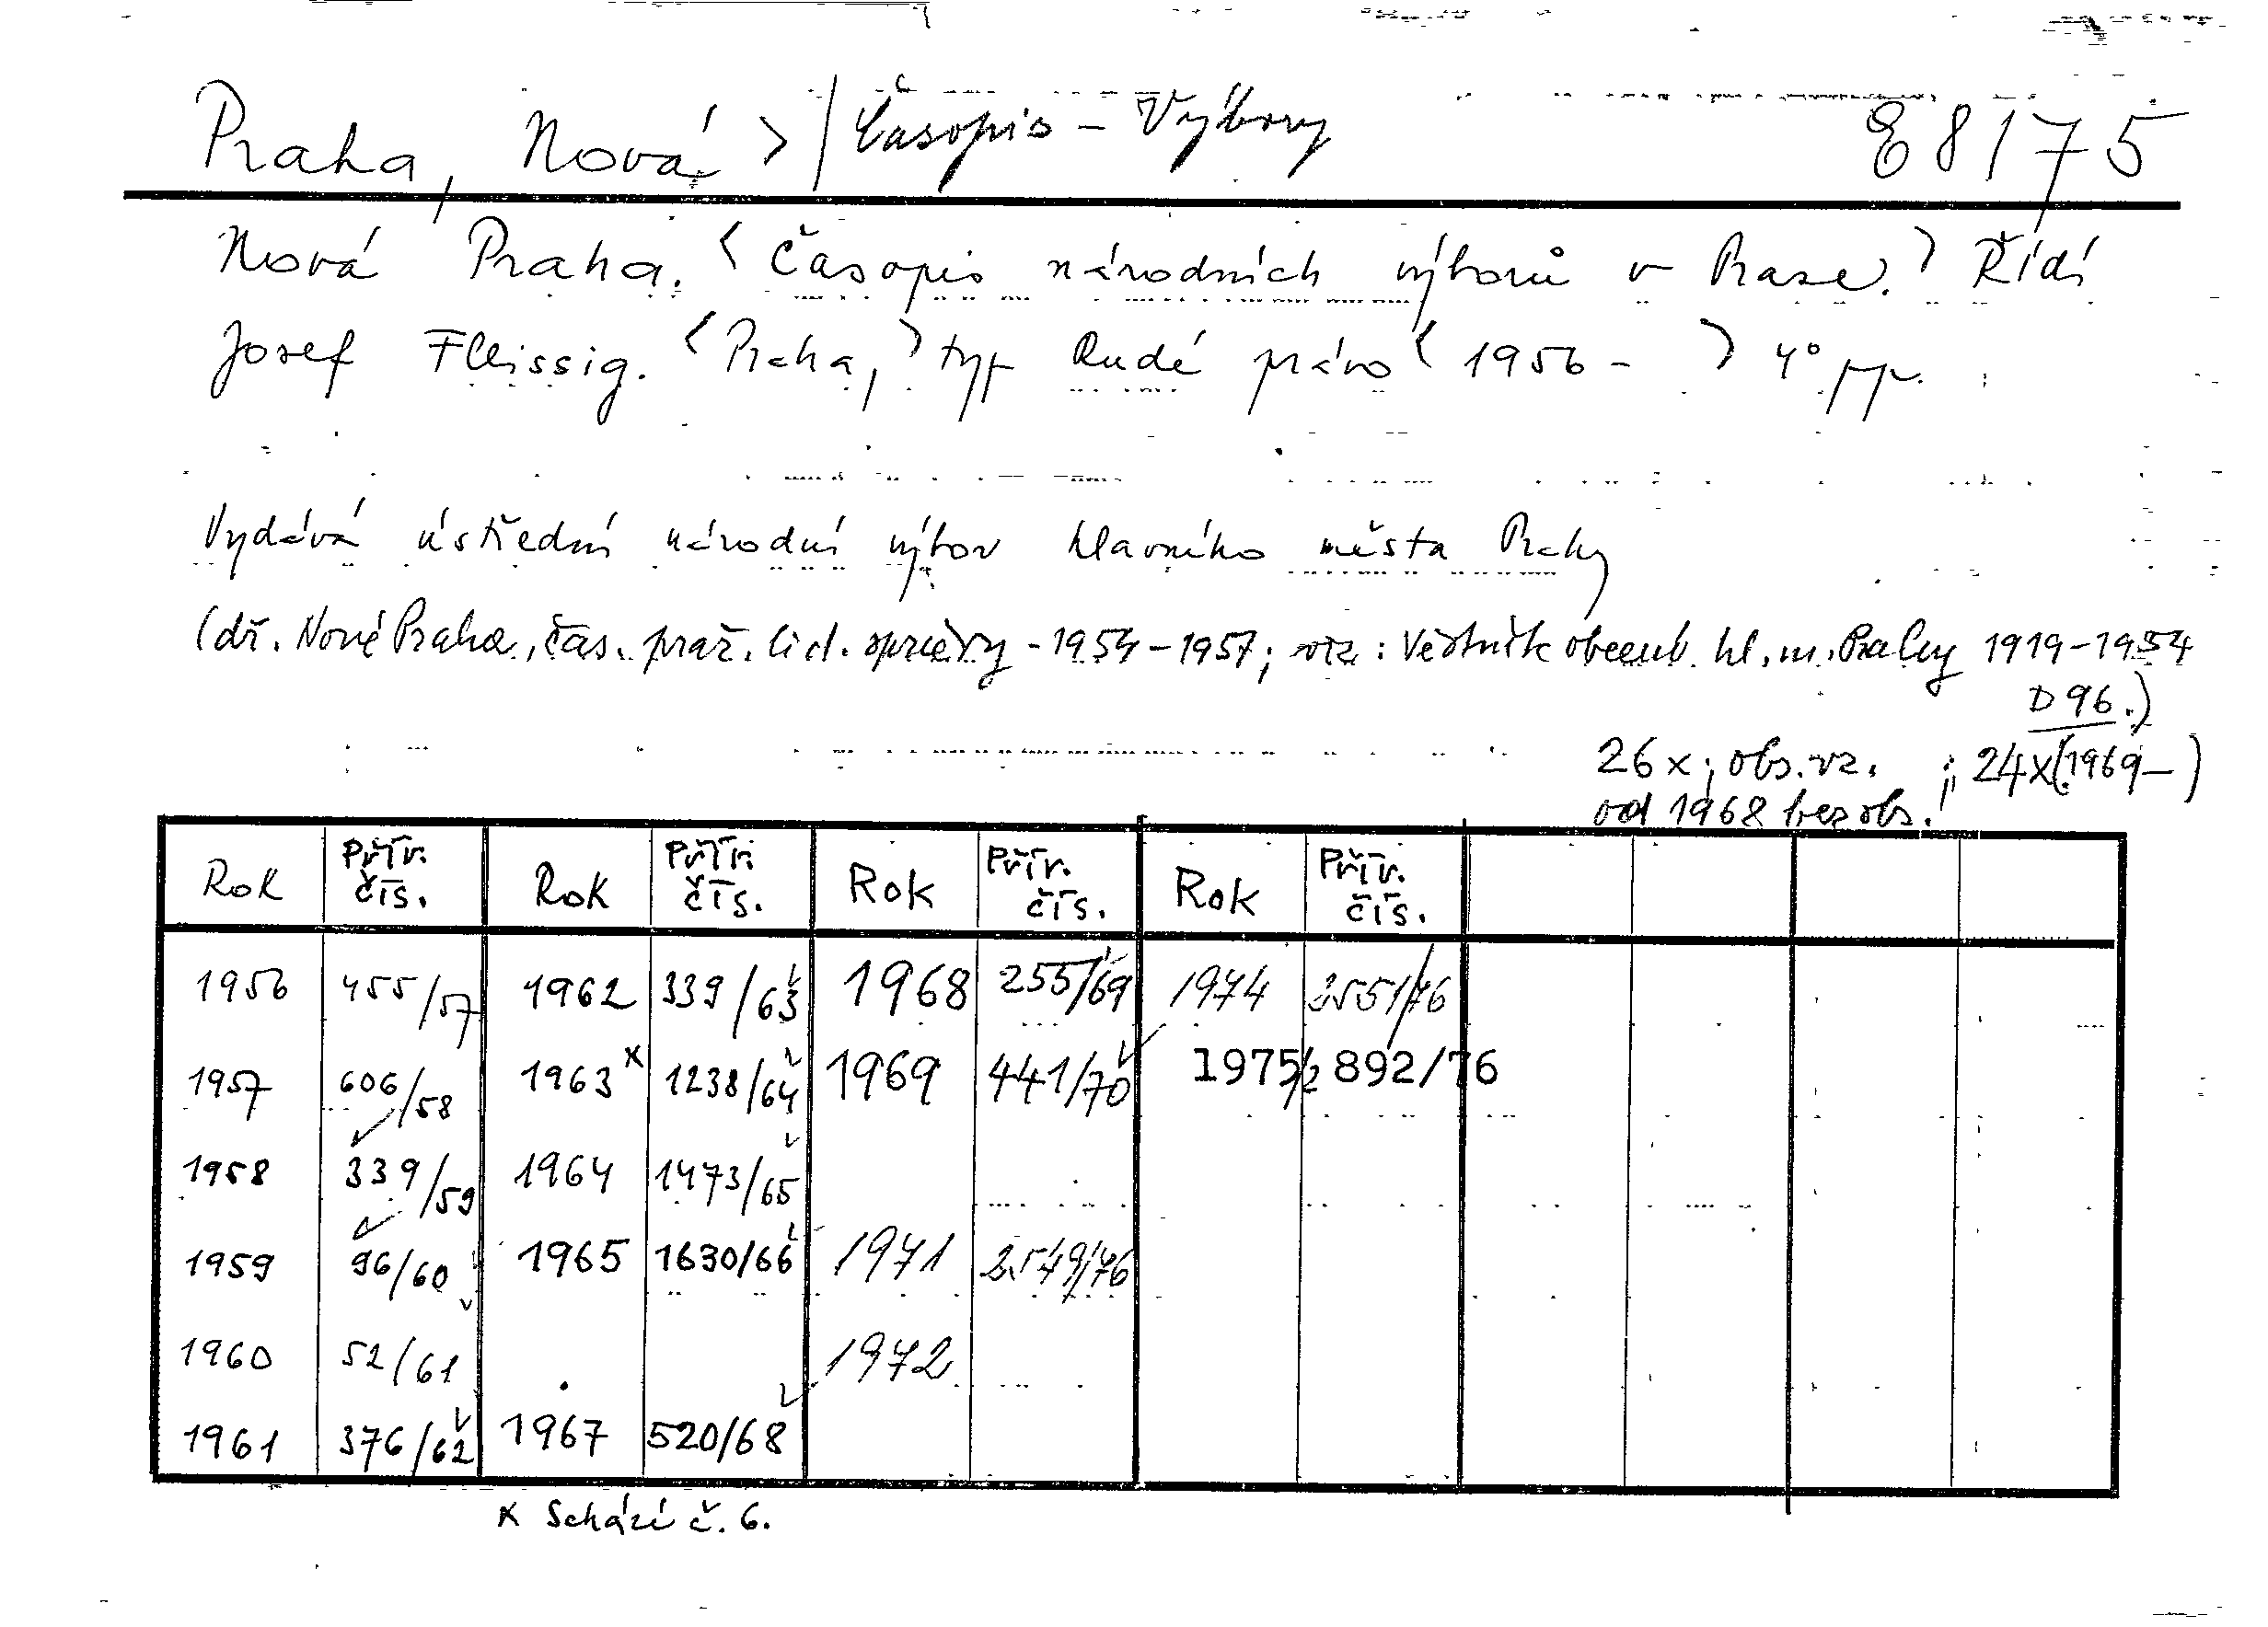 Praha, Nová > / Časopis - Výbory E 8175
Nová Praha. < Časopis národních výborů v Praze. > Řídí
Josef Fleissig. < Praha, > typ Rudé právo < 1956 - > 4° pp.
Vydává ústřední národní výbor hlavního města Prahy
(dř. Nová Praha, čas. praž. lid. správy - 1954 - 1957; viz: Věstník obecní hl. m. Prahy 1919 - 1954
D 96.)
26 x; obs. vz. ; 24x (1969 - )
od 1968 bez obs.
Rok Přír. čís. Rok Přír. čís. Rok Přír. čís. Rok Přír. čís.
1956 455/57 1962 339/63 1968 255/69 1974 2551/76
1957 606/58 1963 x 1238/64 1969 441/70 1975/2 892/76
1958 339/59 1964 1473/65
1959 96/60 1965 1630/66 1971 2549/76
1960 52/61 1972
1961 376/62 1967 520/68
x Schází č. 6.